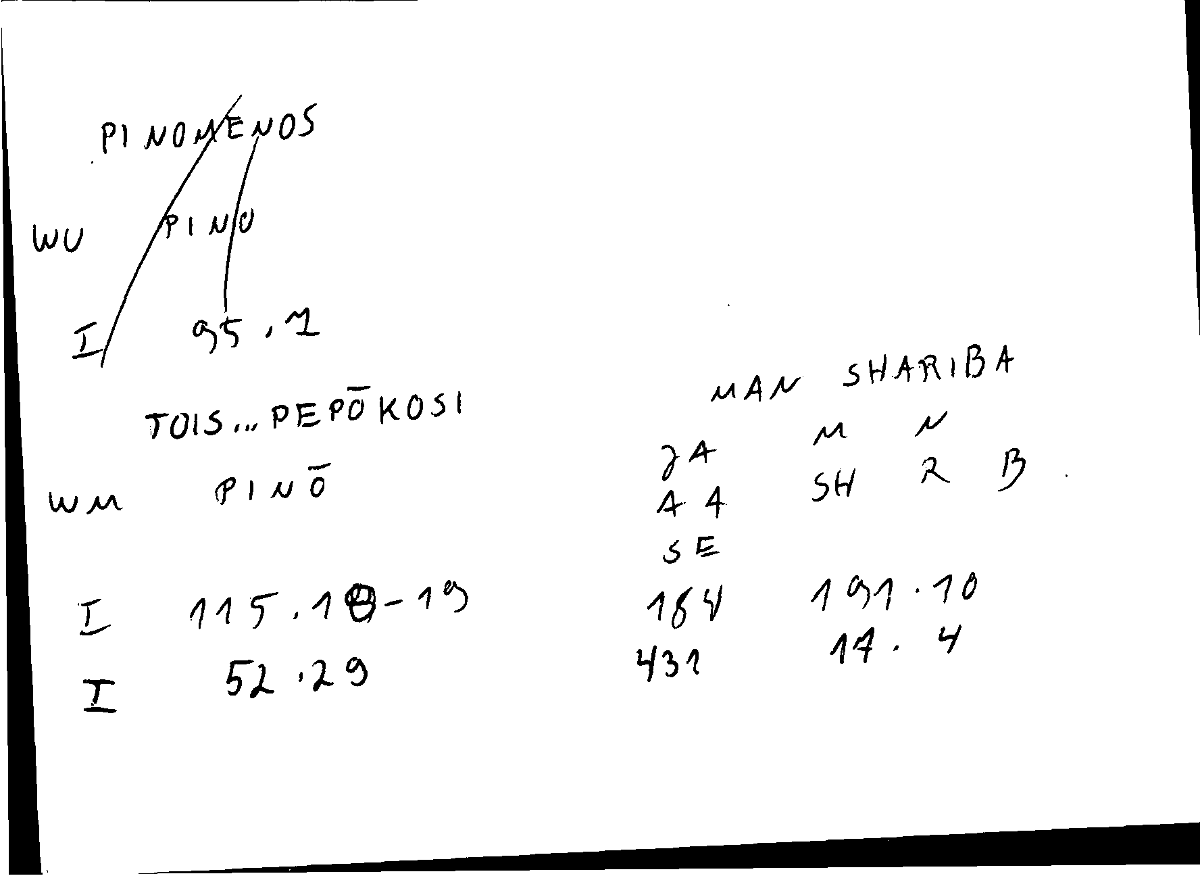 PINOMENOS
WU PINO
I 95.1
TOIS... PEPŌKOSI
WM PINŌ
I 115.18-19
I 52.29
MAN SHARIBA
JA M N
AA SH R B
SE
184 191.10
431 17.4